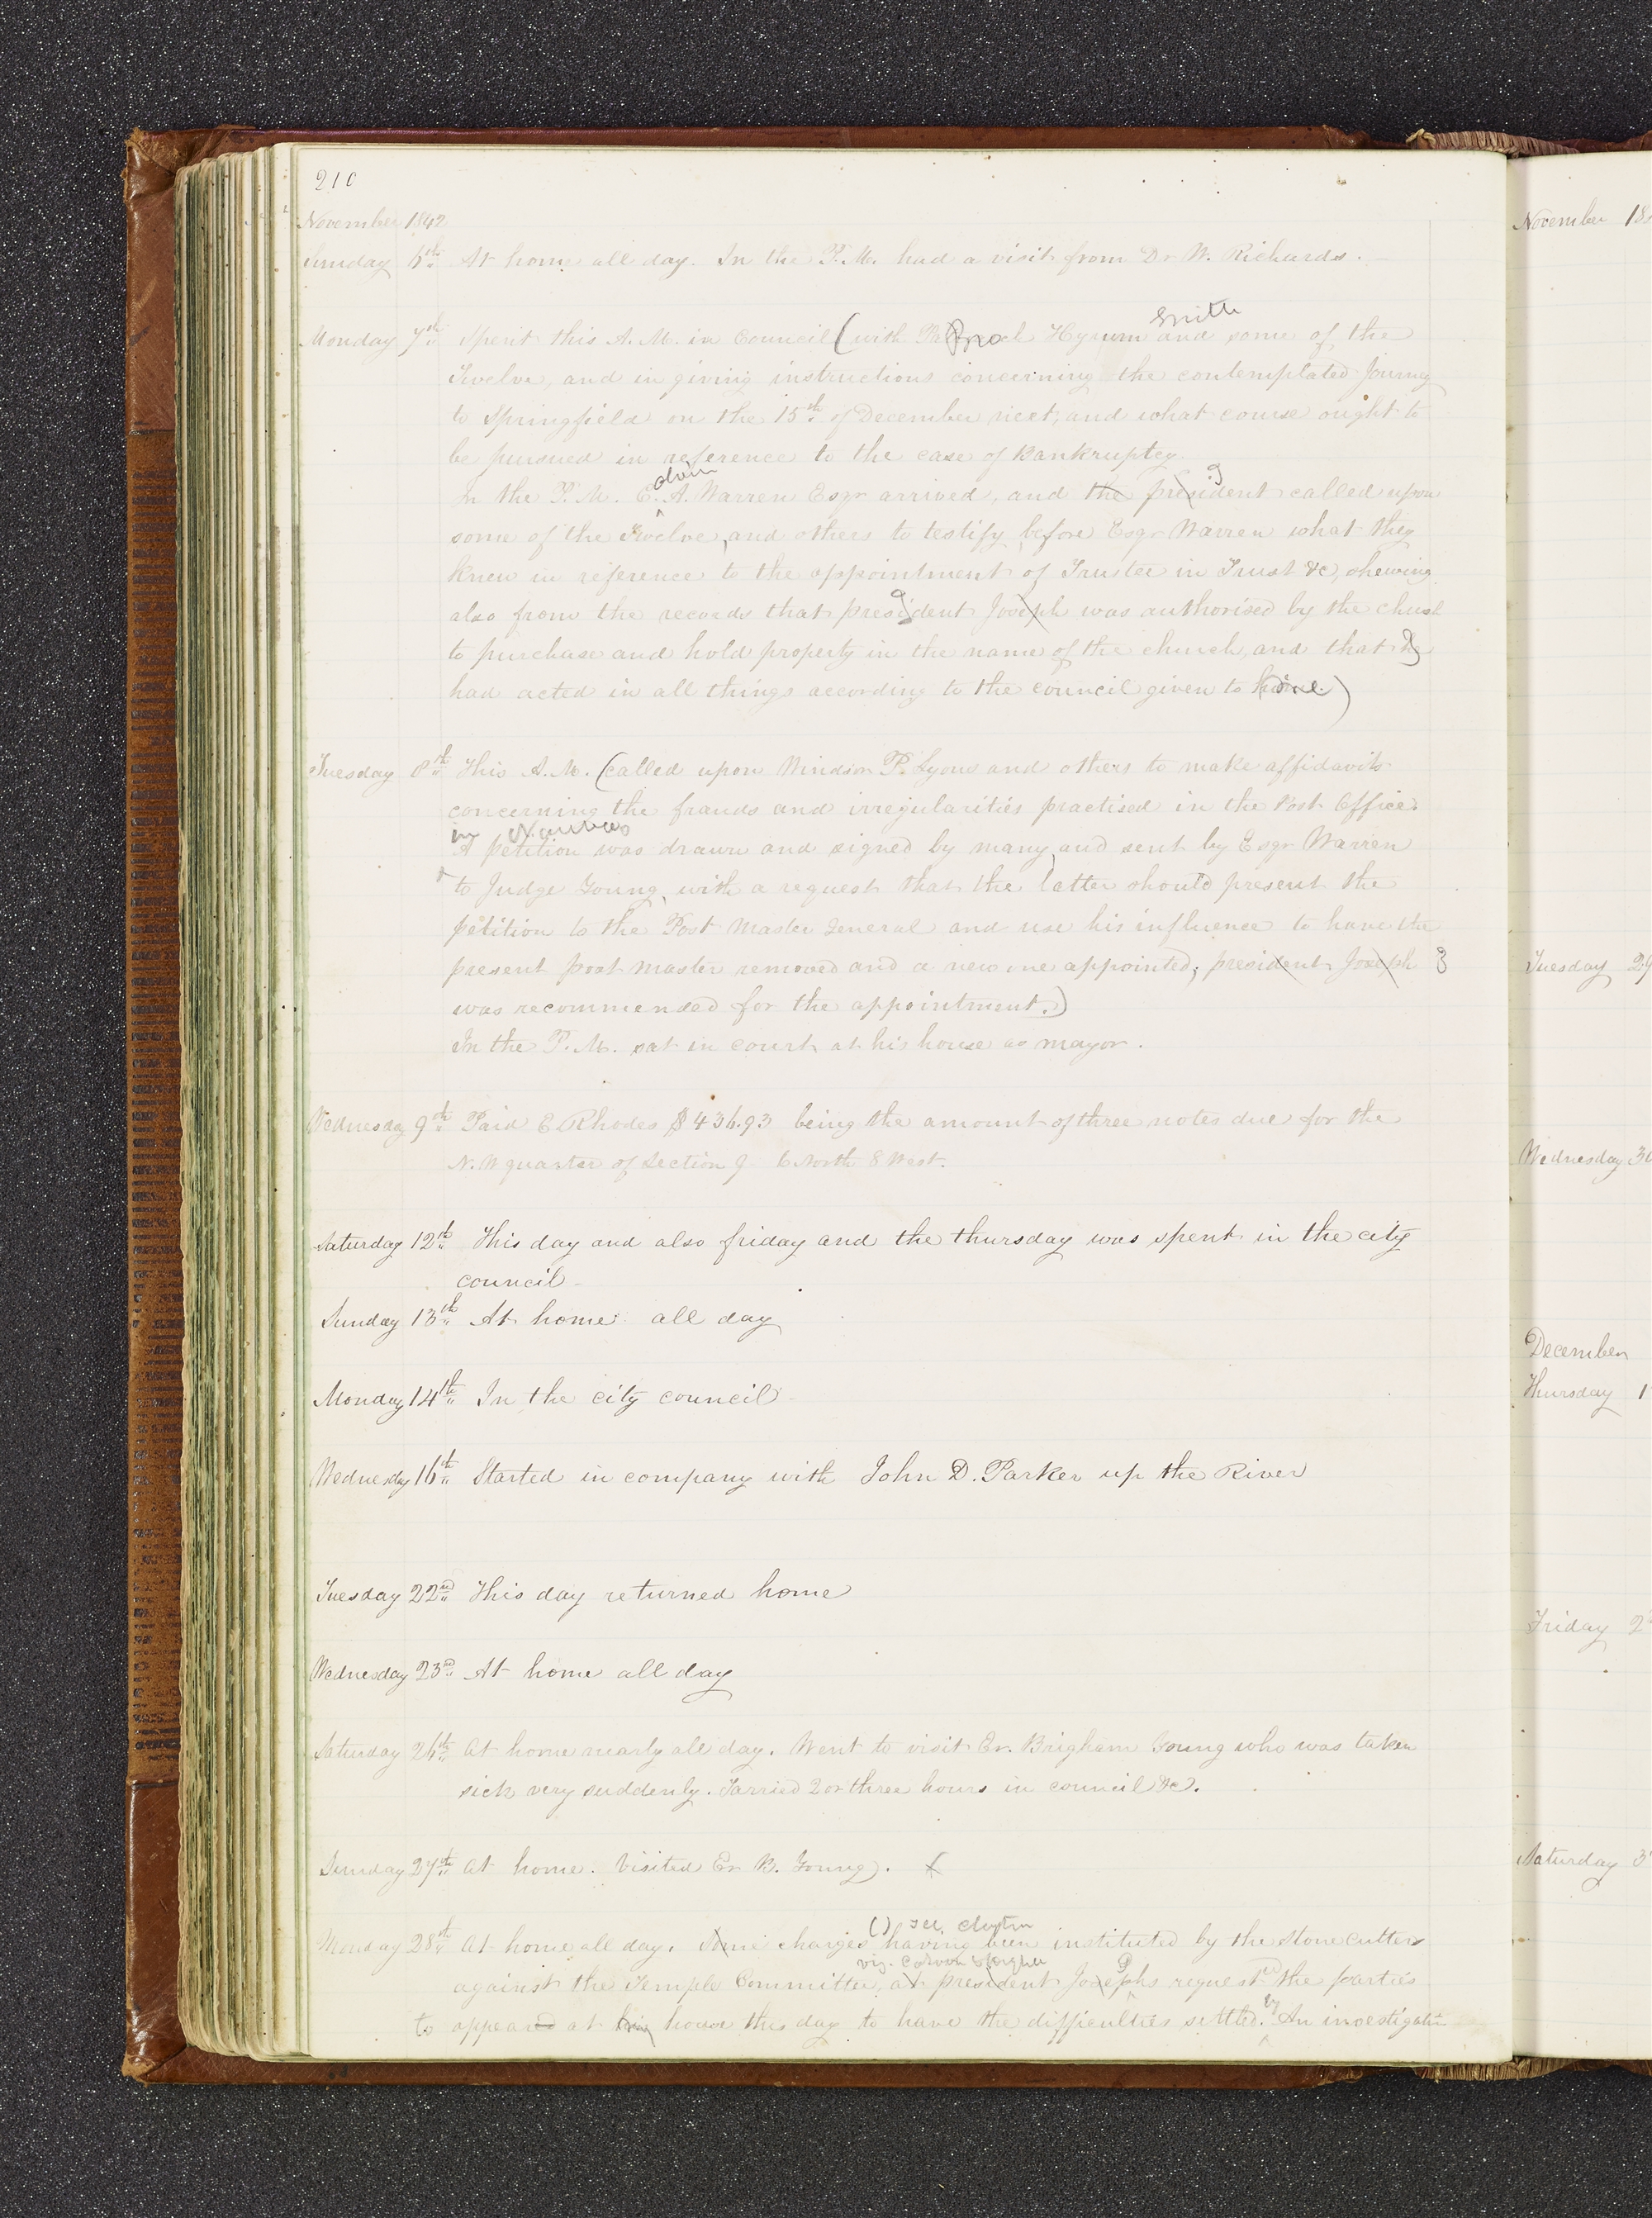 210
November 1842
Sunday 6th At home all day. In the P.M. had a visit from Dr W. Richards.
Smith
Monday 7th Spent this A.M. in Council (with Bro Hyrum and some of the
Twelve, and in giving instructions concerning the contemplated Journey
to Springfield on the 15th of December next, and what course ought to
be pursued in reference to the case of Bankruptcy.
alvin
In the P.M. C. A. Warren Esqr arrived, and the president I called upon
some of the Twelve, and others to testify before Esqr Warren what they
knew in reference to the appointment of Trustee in Trust &c, shewing
also from the records that president I Joseph was authorised by the church
to purchase and hold property in the name of the church, and that I
had acted in all things according to the council given to me.)
Tuesday 8th This A.M. (called upon Windsor P. Lyons and others to make affidavits
concerning the frauds and irregularities practised in the Post Office
in Nauvoo
A petition was drawn and signed by many, and sent by Esqr Warren
to Judge Young, with a request that the latter should present the
petition to the Post Master General and use his influence to have the
present post Master removed and a new one appointed; president Joseph I
was recommended for the appointment.)
In the P.M. sat in court at his house as mayor.
Wednesday 9th Paid E. Rhodes $436.93 being the amount of three notes due for the
N. W quarter of Section 9 6 North 8 West.
Saturday 12th This day and also friday and the thursday was spent in the city
council
Sunday 13th At home all day
Monday 14th In the city council
Wednesday 16th Started in company with John D. Parker up the River
Tuesday 22nd This day returned home
Wednesday 23rd At home all day
Saturday 26th At home nearly all day. Went to visit Er. Brigham Young who was taken
sick very suddenly. Tarried 2 or three hours in council &c.
Sunday 27th At home. Visited Er B. Young.
Monday 28th At home all day. Some charges having been instituted by the Stone cutters
viz. Cahoon & Higbee
against the Temple Committee, at president Josephs I requested the parties
to appeared at his my house this day to have the difficulties settled. An investigatn
November 18
Tuesday 29
Wednesday 30
December
Thursday 1
Friday 2
Saturday 3